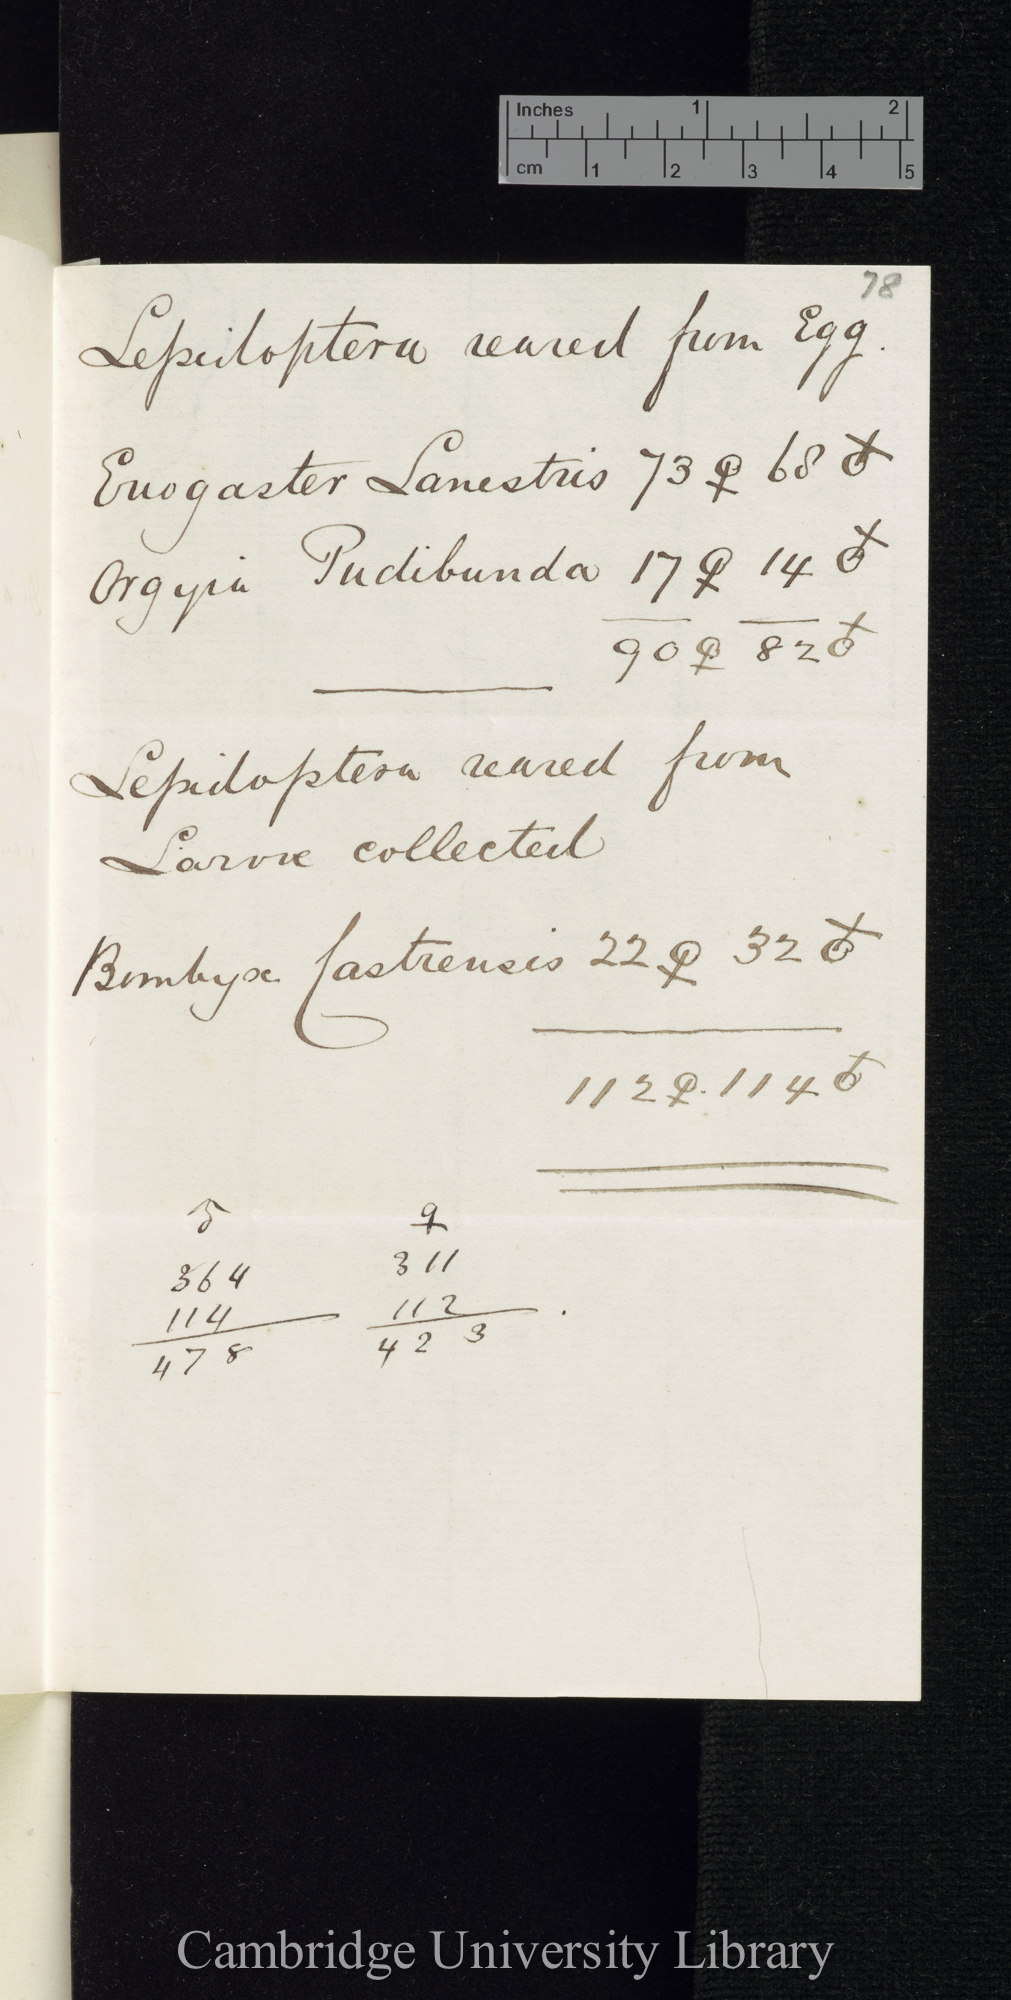 Inches 1 2
cm 1 2 3 4 5
78
Lepidoptera reared from Egg.
Eriogaster Lanestris 73 ♀ 68 ♂
Orgyia Pudibunda 17 ♀ 14 ♂
90 ♀ 82 ♂
Lepidoptera reared from
Larvæ collected
Bombyx Castrensis 22 ♀ 32 ♂
112 ♀. 114 ♂
♂ ♀
364 311
114 112
478 423
Cambridge University Library